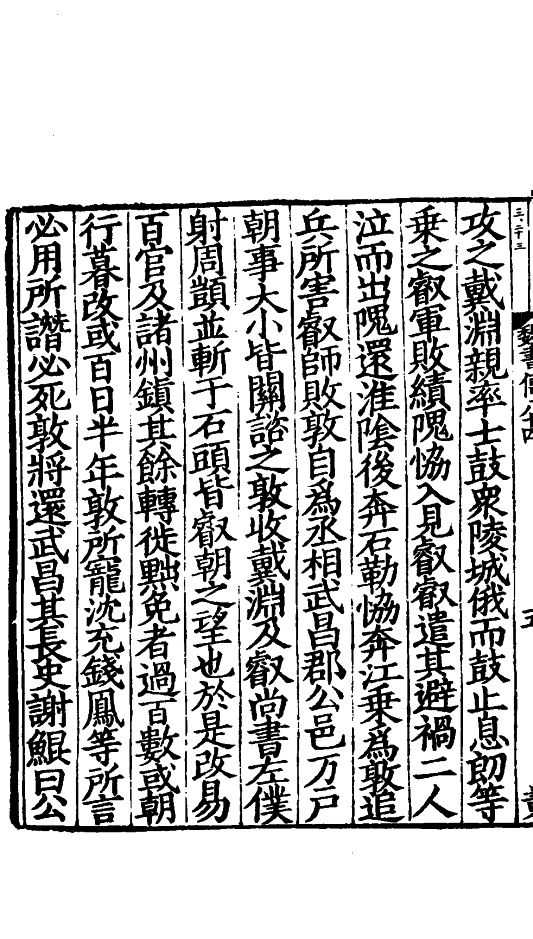 魏書傳八十四
五
攻之戴淵親率士鼓衆陵城俄而鼓止息訒等
乘之叡軍敗績隗協入見叡叡遣其避禍二人
泣而出隗還淮陰後奔石勒協奔江乘爲敦追
兵所害叡師敗敦自爲丞相武昌郡公邑万户
朝事大小皆關諮之敦收戴淵及叡尚書左僕
射周顗並斬于石頭皆叡朝之望也於是改易
百官及諸州鎮其餘轉徙黜免者過百數或朝
行暮改或百日半年敦所寵沈充錢鳳等所言
必用所譖必死敦將還武昌其長史謝鯤曰公